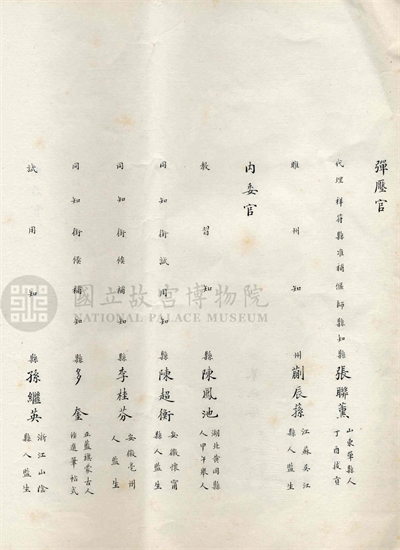 彈壓官
代理祥符縣准補偃師縣知縣張聯薰 山東單縣人丁酉拔貢
睢州知州蒯辰蓀 江蘇吳江縣人監生
內委官
教習知縣陳鳳池 湖北黃岡縣人甲午舉人
同知銜試用知縣陳超衡 安徽懷甯縣人監生
同知銜候補知縣李桂芬 安徽亳州人監生
同知銜候補知縣多奎 正藍旗蒙古人筆帖式
試用知縣孫繼英 浙江山陰縣人監生
國立故宮博物院
NATIONAL PALACE MUSEUM